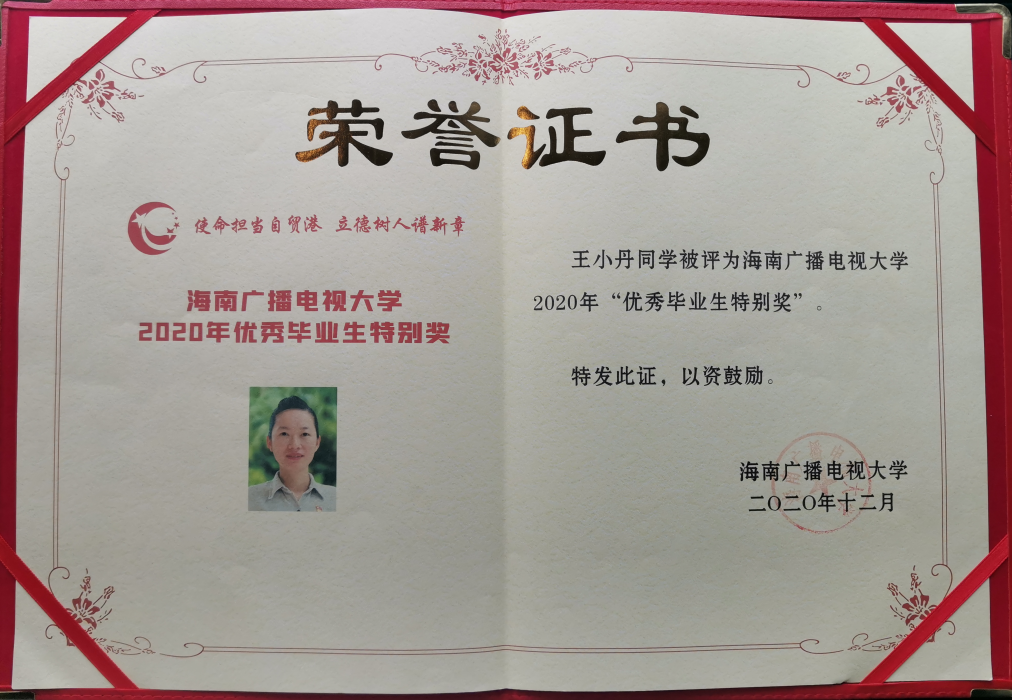 荣誉证书
使命担当自贸港 立德树人谱新章
海南广播电视大学
2020年优秀毕业生特别奖
王小丹同学被评为海南广播电视大学
2020年“优秀毕业生特别奖”。
特发此证，以资鼓励。
海南广播电视大学
二〇二〇年十二月